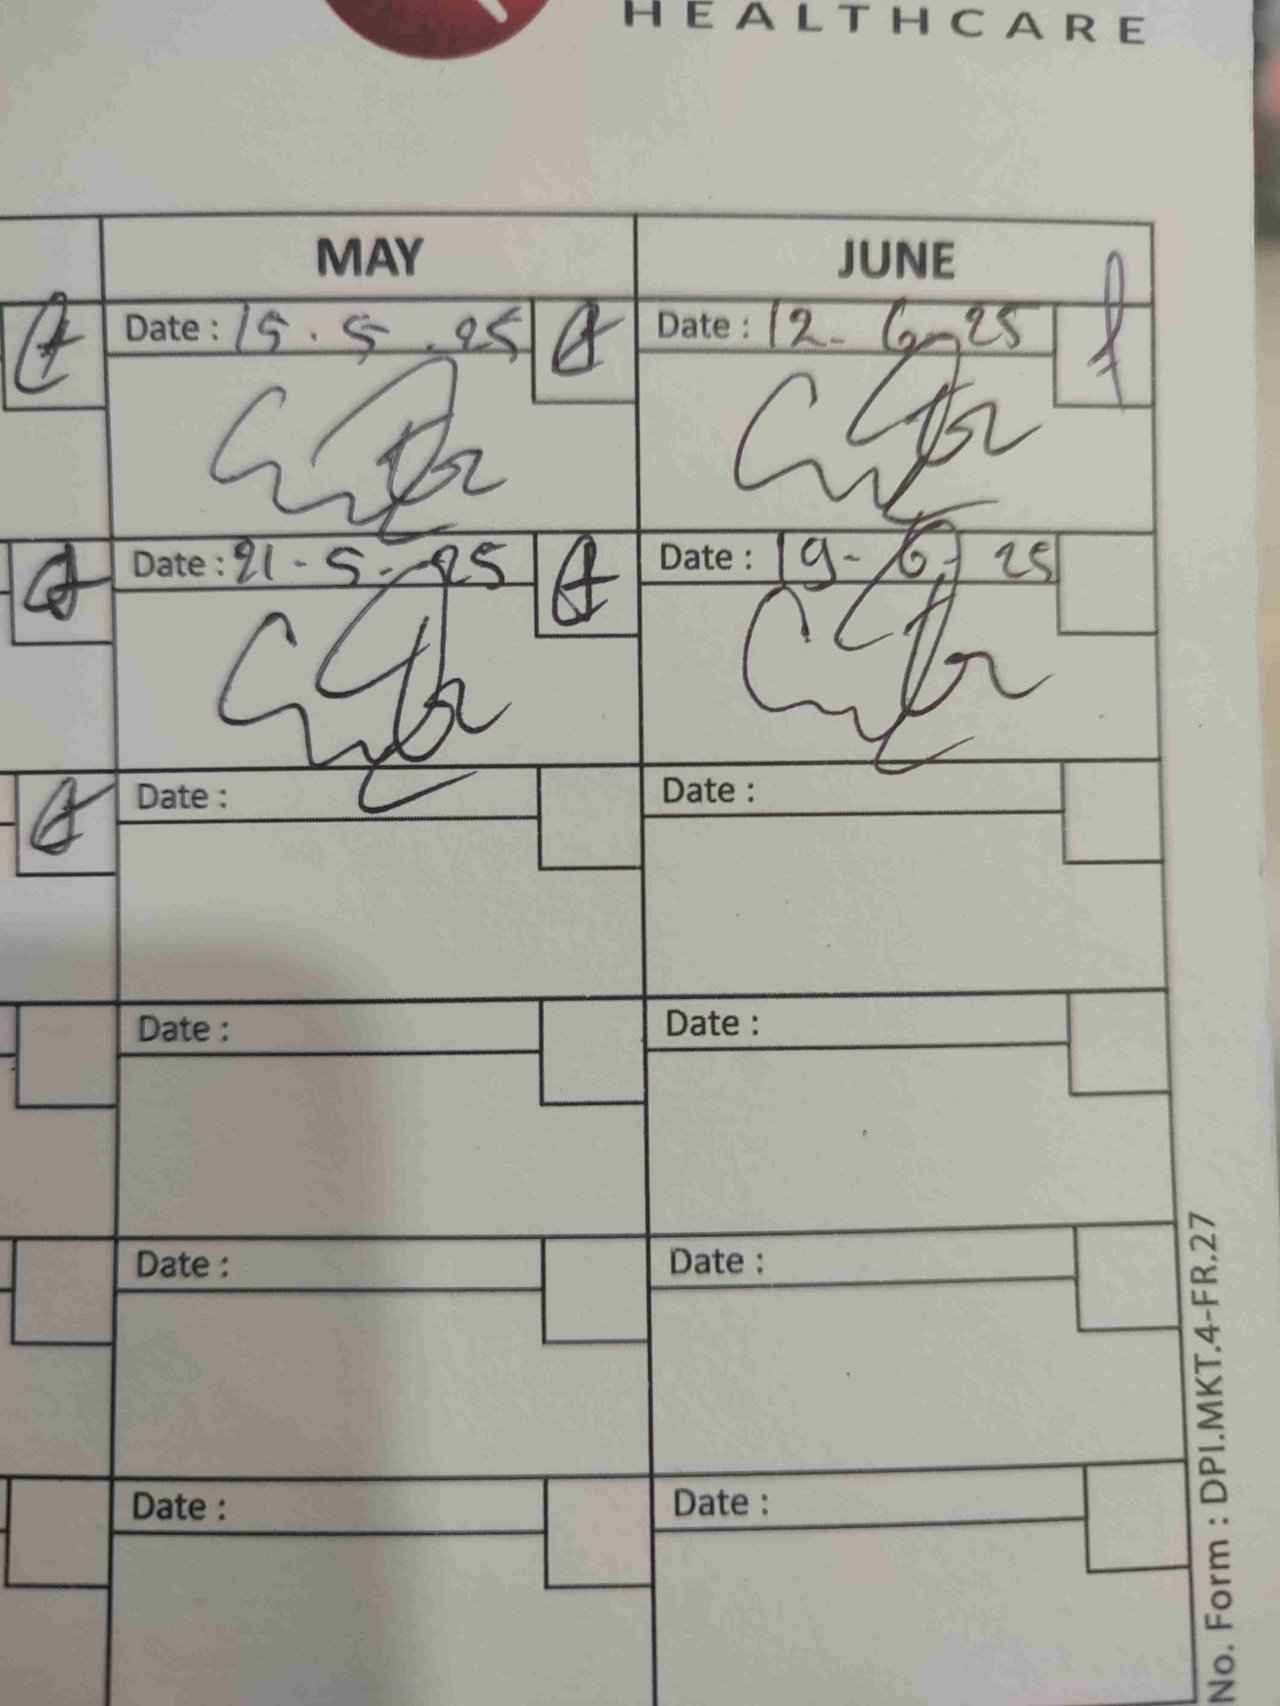 HEALTHCARE
MAY JUNE
Date : 15 . 5 . 25 Date : 12 - 6 - 25
Date : 21 - 5 - 25 Date : 19 - 6 - 25
Date : Date :
Date : Date :
Date : Date :
Date : Date :
No. Form : DPI.MKT.4-FR.27